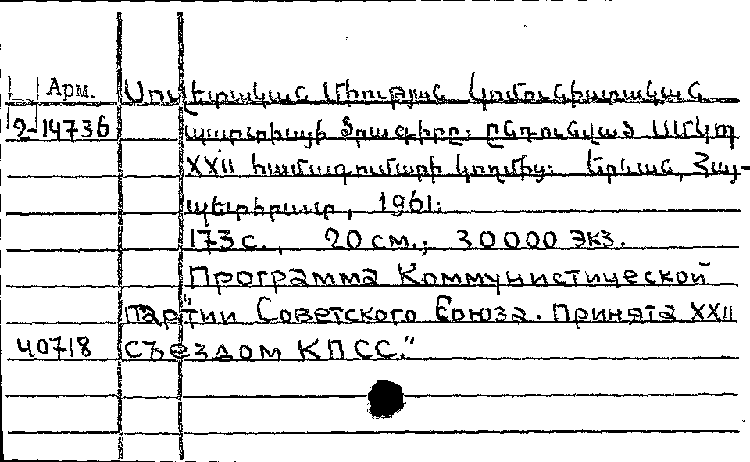 Арм. Սովետական Միության Կոմունիստական
2-14736 պարտիայի ծրագիրը: Ընդունված ՍՄԿՊ
XXII համագումարի կողմից: Երևան, Հայ-
պետհրատ, 1961:
173 с., 20 см.; 30000 экз.
Программа Коммунистической
партии Советского Союза. Принята XXII
40718 съездом КПСС."